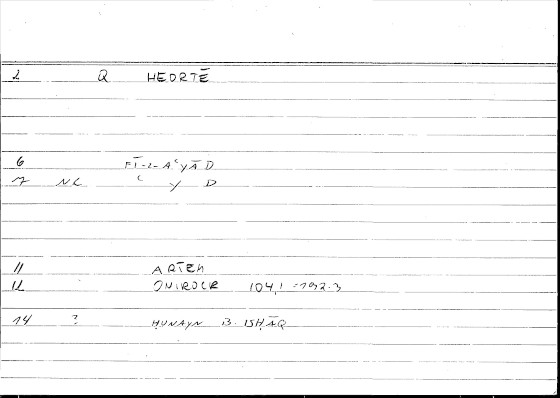 2 Q HEORTĒ
6 FĪ-L-AʿYĀD
7 NC ʿ Y D
11 ARTEM
12 ONIROCR 104,1 - 192.3
14 ? ḤUNAYN B. ISḤĀQ